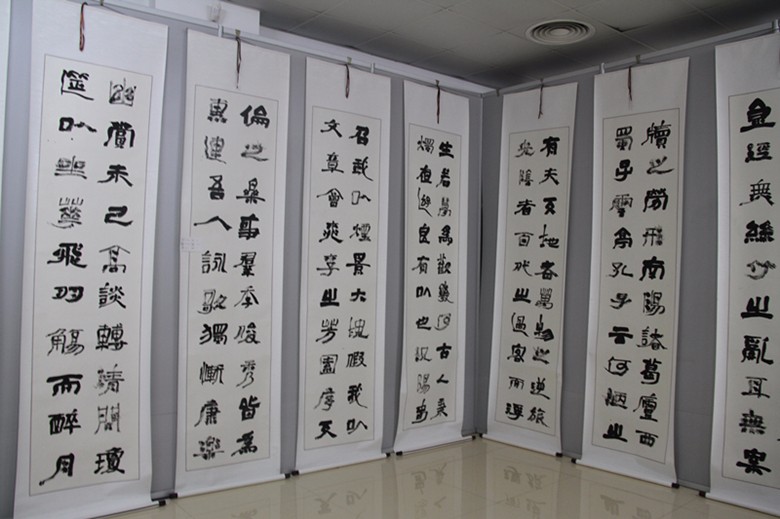 金經無絲竹之亂耳無案
牘之勞形南陽諸葛廬西
蜀子雲亭孔子云何陋之
有夫天地者萬物之逆旅
光陰者百代之過客而浮
生若夢為歡幾何古人秉
燭夜遊良有以也況陽春
召我以煙景大塊假我以
文章會桃李之芳園序天
倫之樂事羣季俊秀皆為
惠連吾人詠歌獨慚康樂
幽賞未已高談轉清開瓊
筵以坐花飛羽觴而醉月